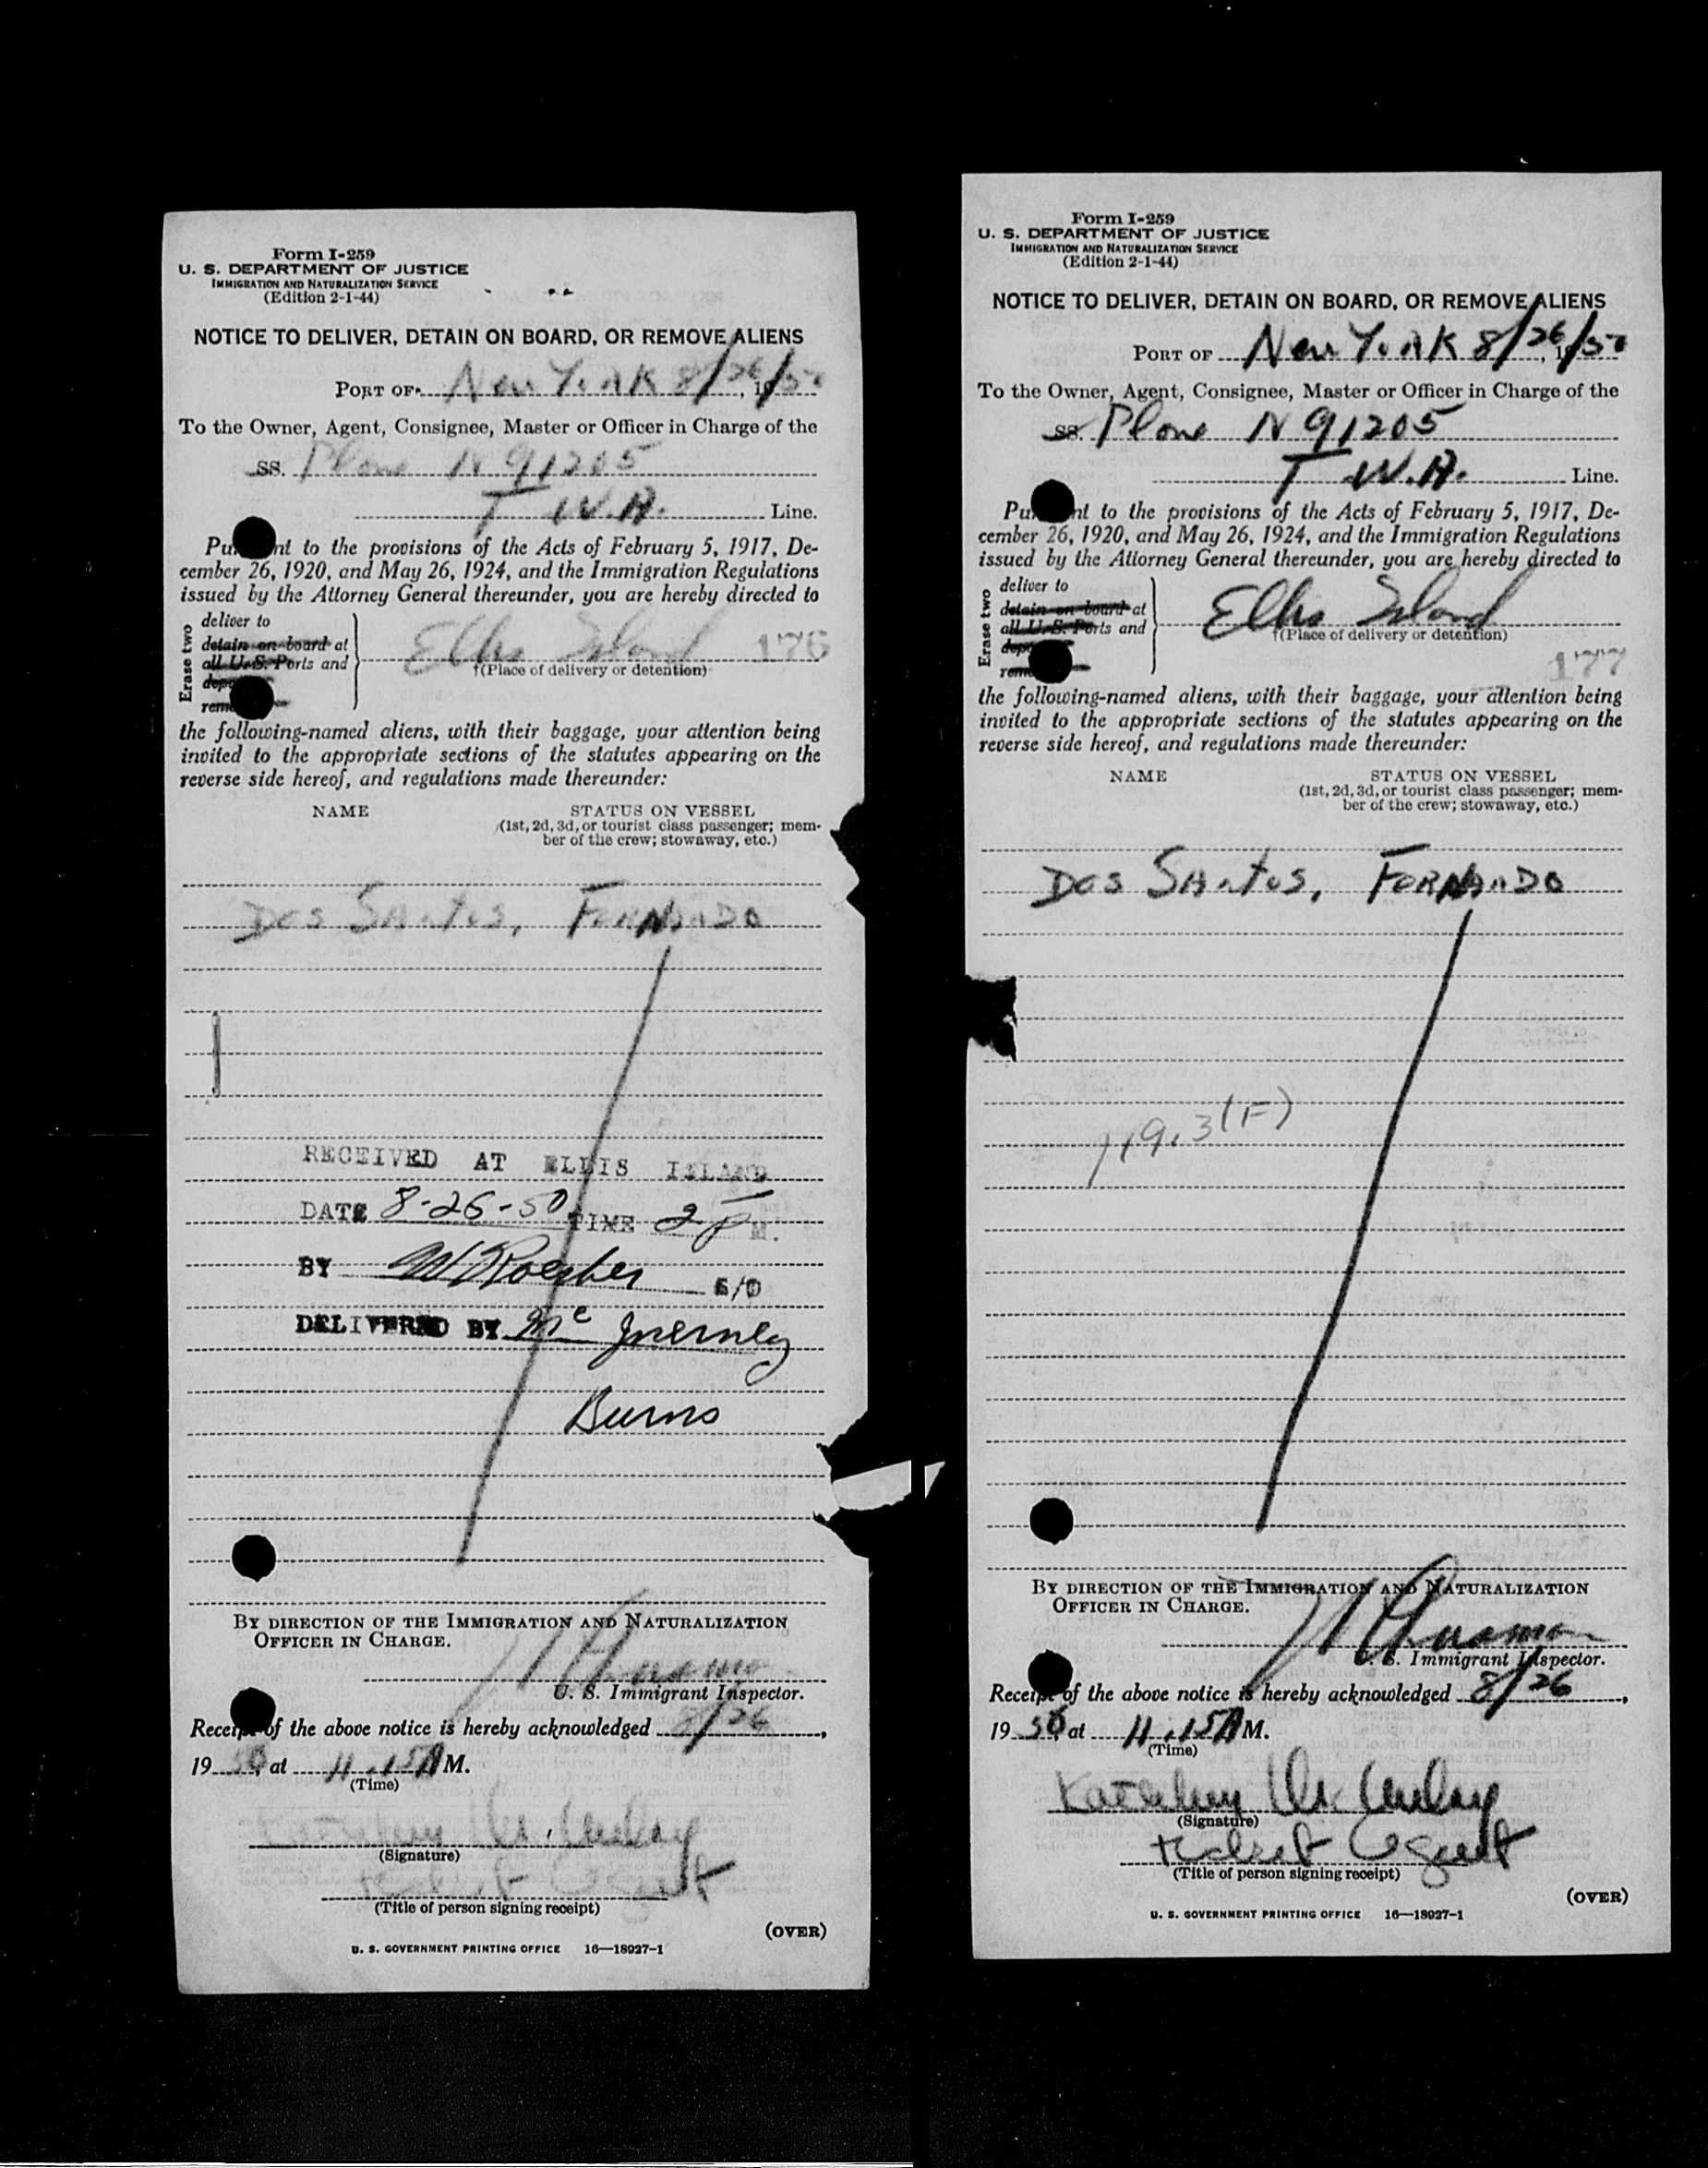 Form I-259
U. S. DEPARTMENT OF JUSTICE
IMMIGRATION AND NATURALIZATION SERVICE
(Edition 2-1-44)
NOTICE TO DELIVER, DETAIN ON BOARD, OR REMOVE ALIENS
PORT OF New York 8/26, 19/50
To the Owner, Agent, Consignee, Master or Officer in Charge of the
SS. Plane N 91205
T W.A. Line.
Pu nt to the provisions of the Acts of February 5, 1917, De-
cember 26, 1920, and May 26, 1924, and the Immigration Regulations
issued by the Attorney General thereunder, you are hereby directed to
Erase two
deliver to
detain on board at
all U. S. Ports and
depo
rem
Ellis Island 176
†(Place of delivery or detention)
the following-named aliens, with their baggage, your attention being
invited to the appropriate sections of the statutes appearing on the
reverse side hereof, and regulations made thereunder:
NAME STATUS ON VESSEL
(1st, 2d, 3d, or tourist class passenger; mem-
ber of the crew; stowaway, etc.)
Dos Santos, Fernando
RECEIVED AT ELLIS ISLAND
DATE 8-26-50 TIME 2 P M.
BY
DELIVERED BY Mc
Burns
BY DIRECTION OF THE IMMIGRATION AND NATURALIZATION
OFFICER IN CHARGE.
U. S. Immigrant Inspector.
Receipt of the above notice is hereby acknowledged 8/26,
19 50, at 11.15 A M.
(Time)
(Signature)
Agent
(Title of person signing receipt)
(OVER)
U. S. GOVERNMENT PRINTING OFFICE 16—18927-1
Form I-259
U. S. DEPARTMENT OF JUSTICE
IMMIGRATION AND NATURALIZATION SERVICE
(Edition 2-1-44)
NOTICE TO DELIVER, DETAIN ON BOARD, OR REMOVE ALIENS
PORT OF New York 8/26, 19/50
To the Owner, Agent, Consignee, Master or Officer in Charge of the
SS. Plane N 91205
T W.A. Line.
Pu nt to the provisions of the Acts of February 5, 1917, De-
cember 26, 1920, and May 26, 1924, and the Immigration Regulations
issued by the Attorney General thereunder, you are hereby directed to
Erase two
deliver to
detain on board at
all U. S. Ports and
depo
rem
Ellis Island
†(Place of delivery or detention)
177
the following-named aliens, with their baggage, your attention being
invited to the appropriate sections of the statutes appearing on the
reverse side hereof, and regulations made thereunder:
NAME STATUS ON VESSEL
(1st, 2d, 3d, or tourist class passenger; mem-
ber of the crew; stowaway, etc.)
Dos Santos, Fernando
119.3(F)
BY DIRECTION OF THE IMMIGRATION AND NATURALIZATION
OFFICER IN CHARGE.
U. S. Immigrant Inspector.
Receipt of the above notice is hereby acknowledged 8/26,
19 50, at 11.15 A M.
(Time)
(Signature)
Agent
(Title of person signing receipt)
(OVER)
U. S. GOVERNMENT PRINTING OFFICE 16—18927-1